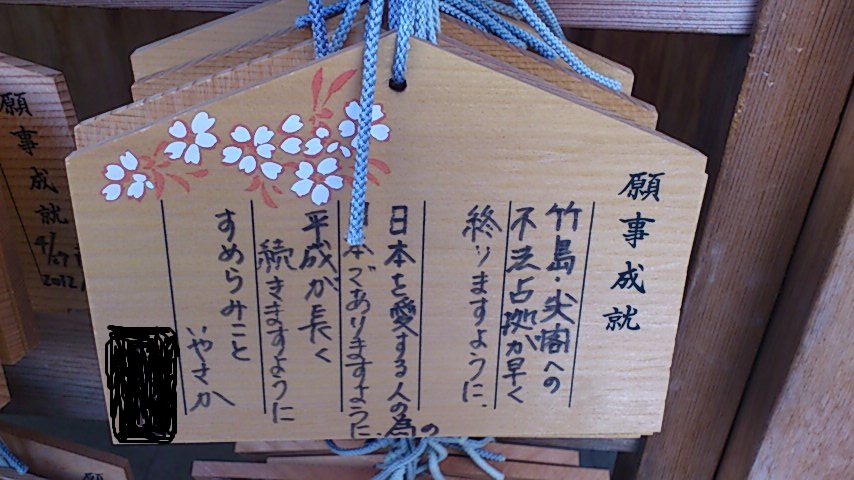 願事成就
竹島・尖閣への
不法占拠が早く
終りますように
日本を愛する人の為の
日本でありますように
平成が長く
続きますように
すめらみこと
いやさか
願事成就
4/27
2012
願